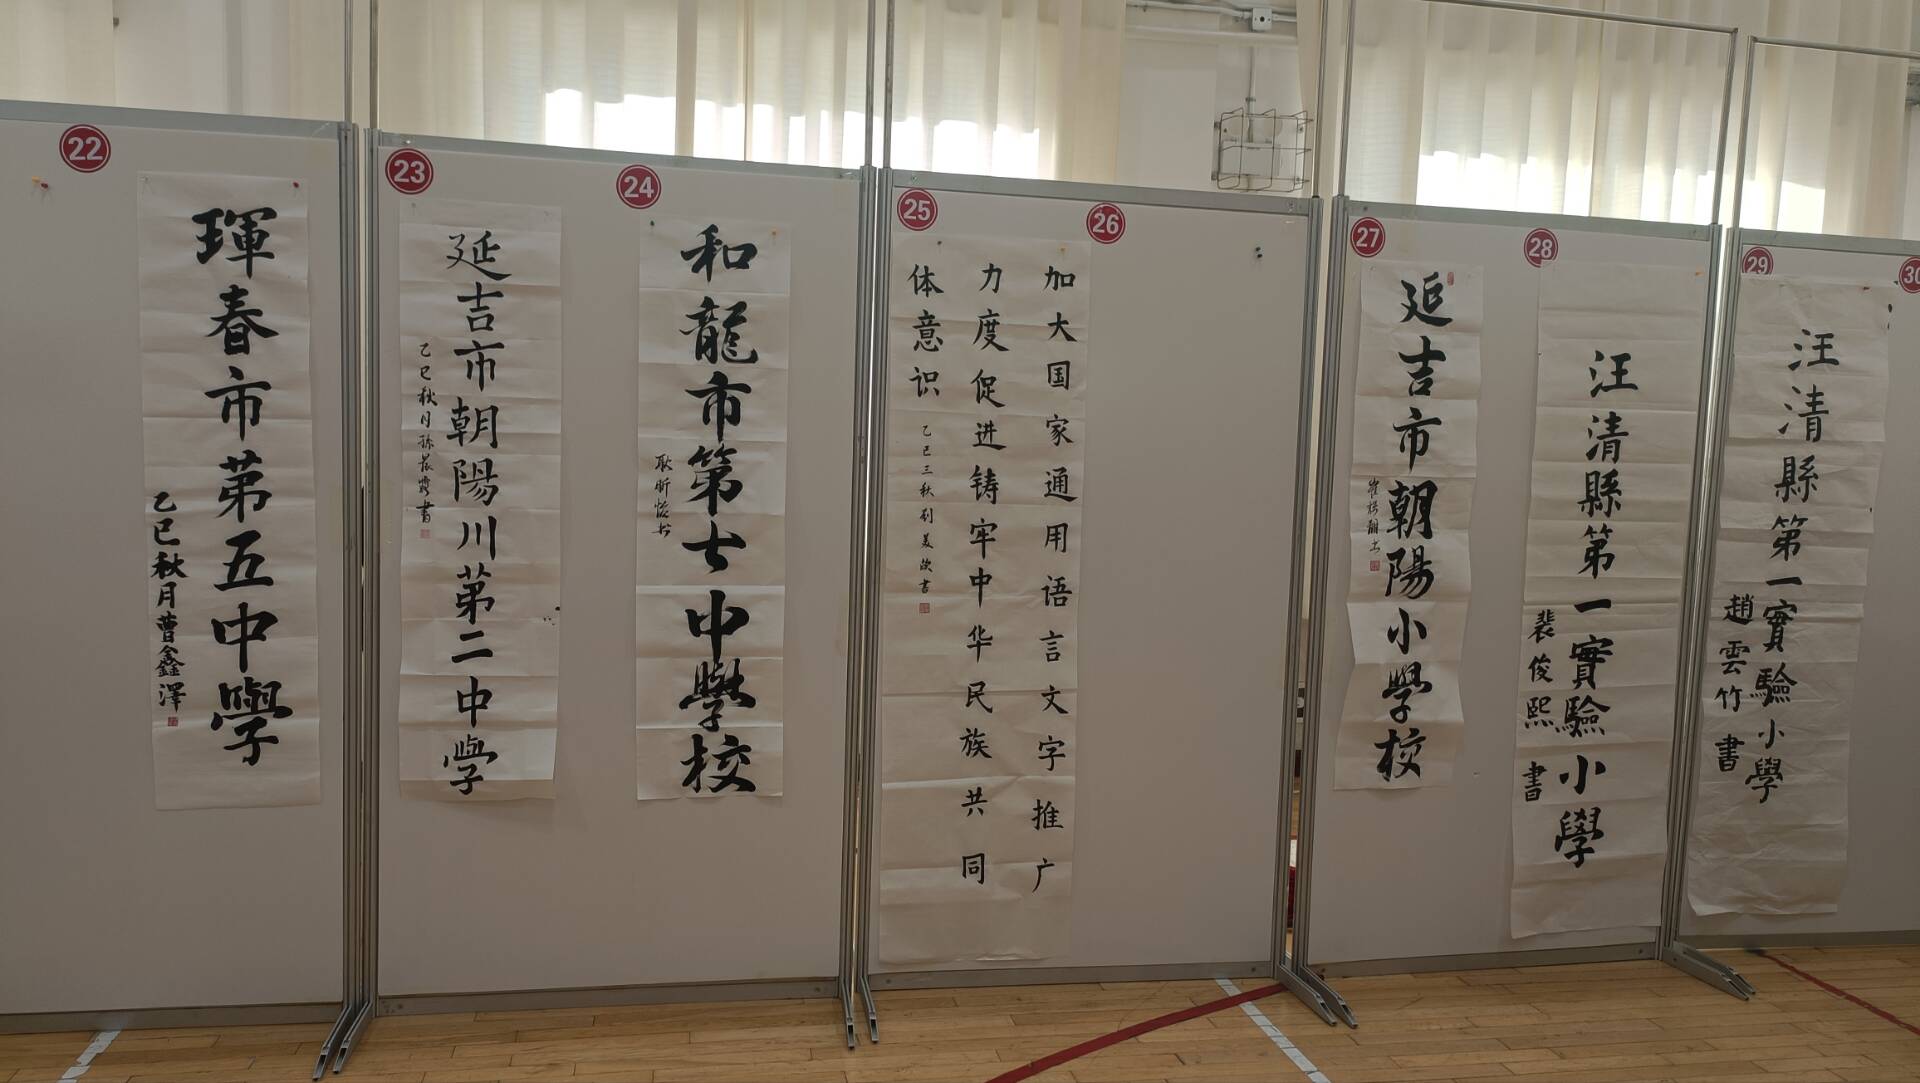 22
琿春市苐五中學
乙巳秋月曹鑫澤
23
延吉市朝陽川苐二中學
乙巳秋月孫書
24
和龍市第七中學校
耿昕书
25
26
加大国家通用语言文字推广
力度促进铸牢中华民族共同
体意识
乙巳三秋刘美书
27
延吉市朝陽小學校
崔书
28
汪清縣第一實驗小學
裴俊熙書
29
汪清縣第一實驗小學
趙雲竹書
30